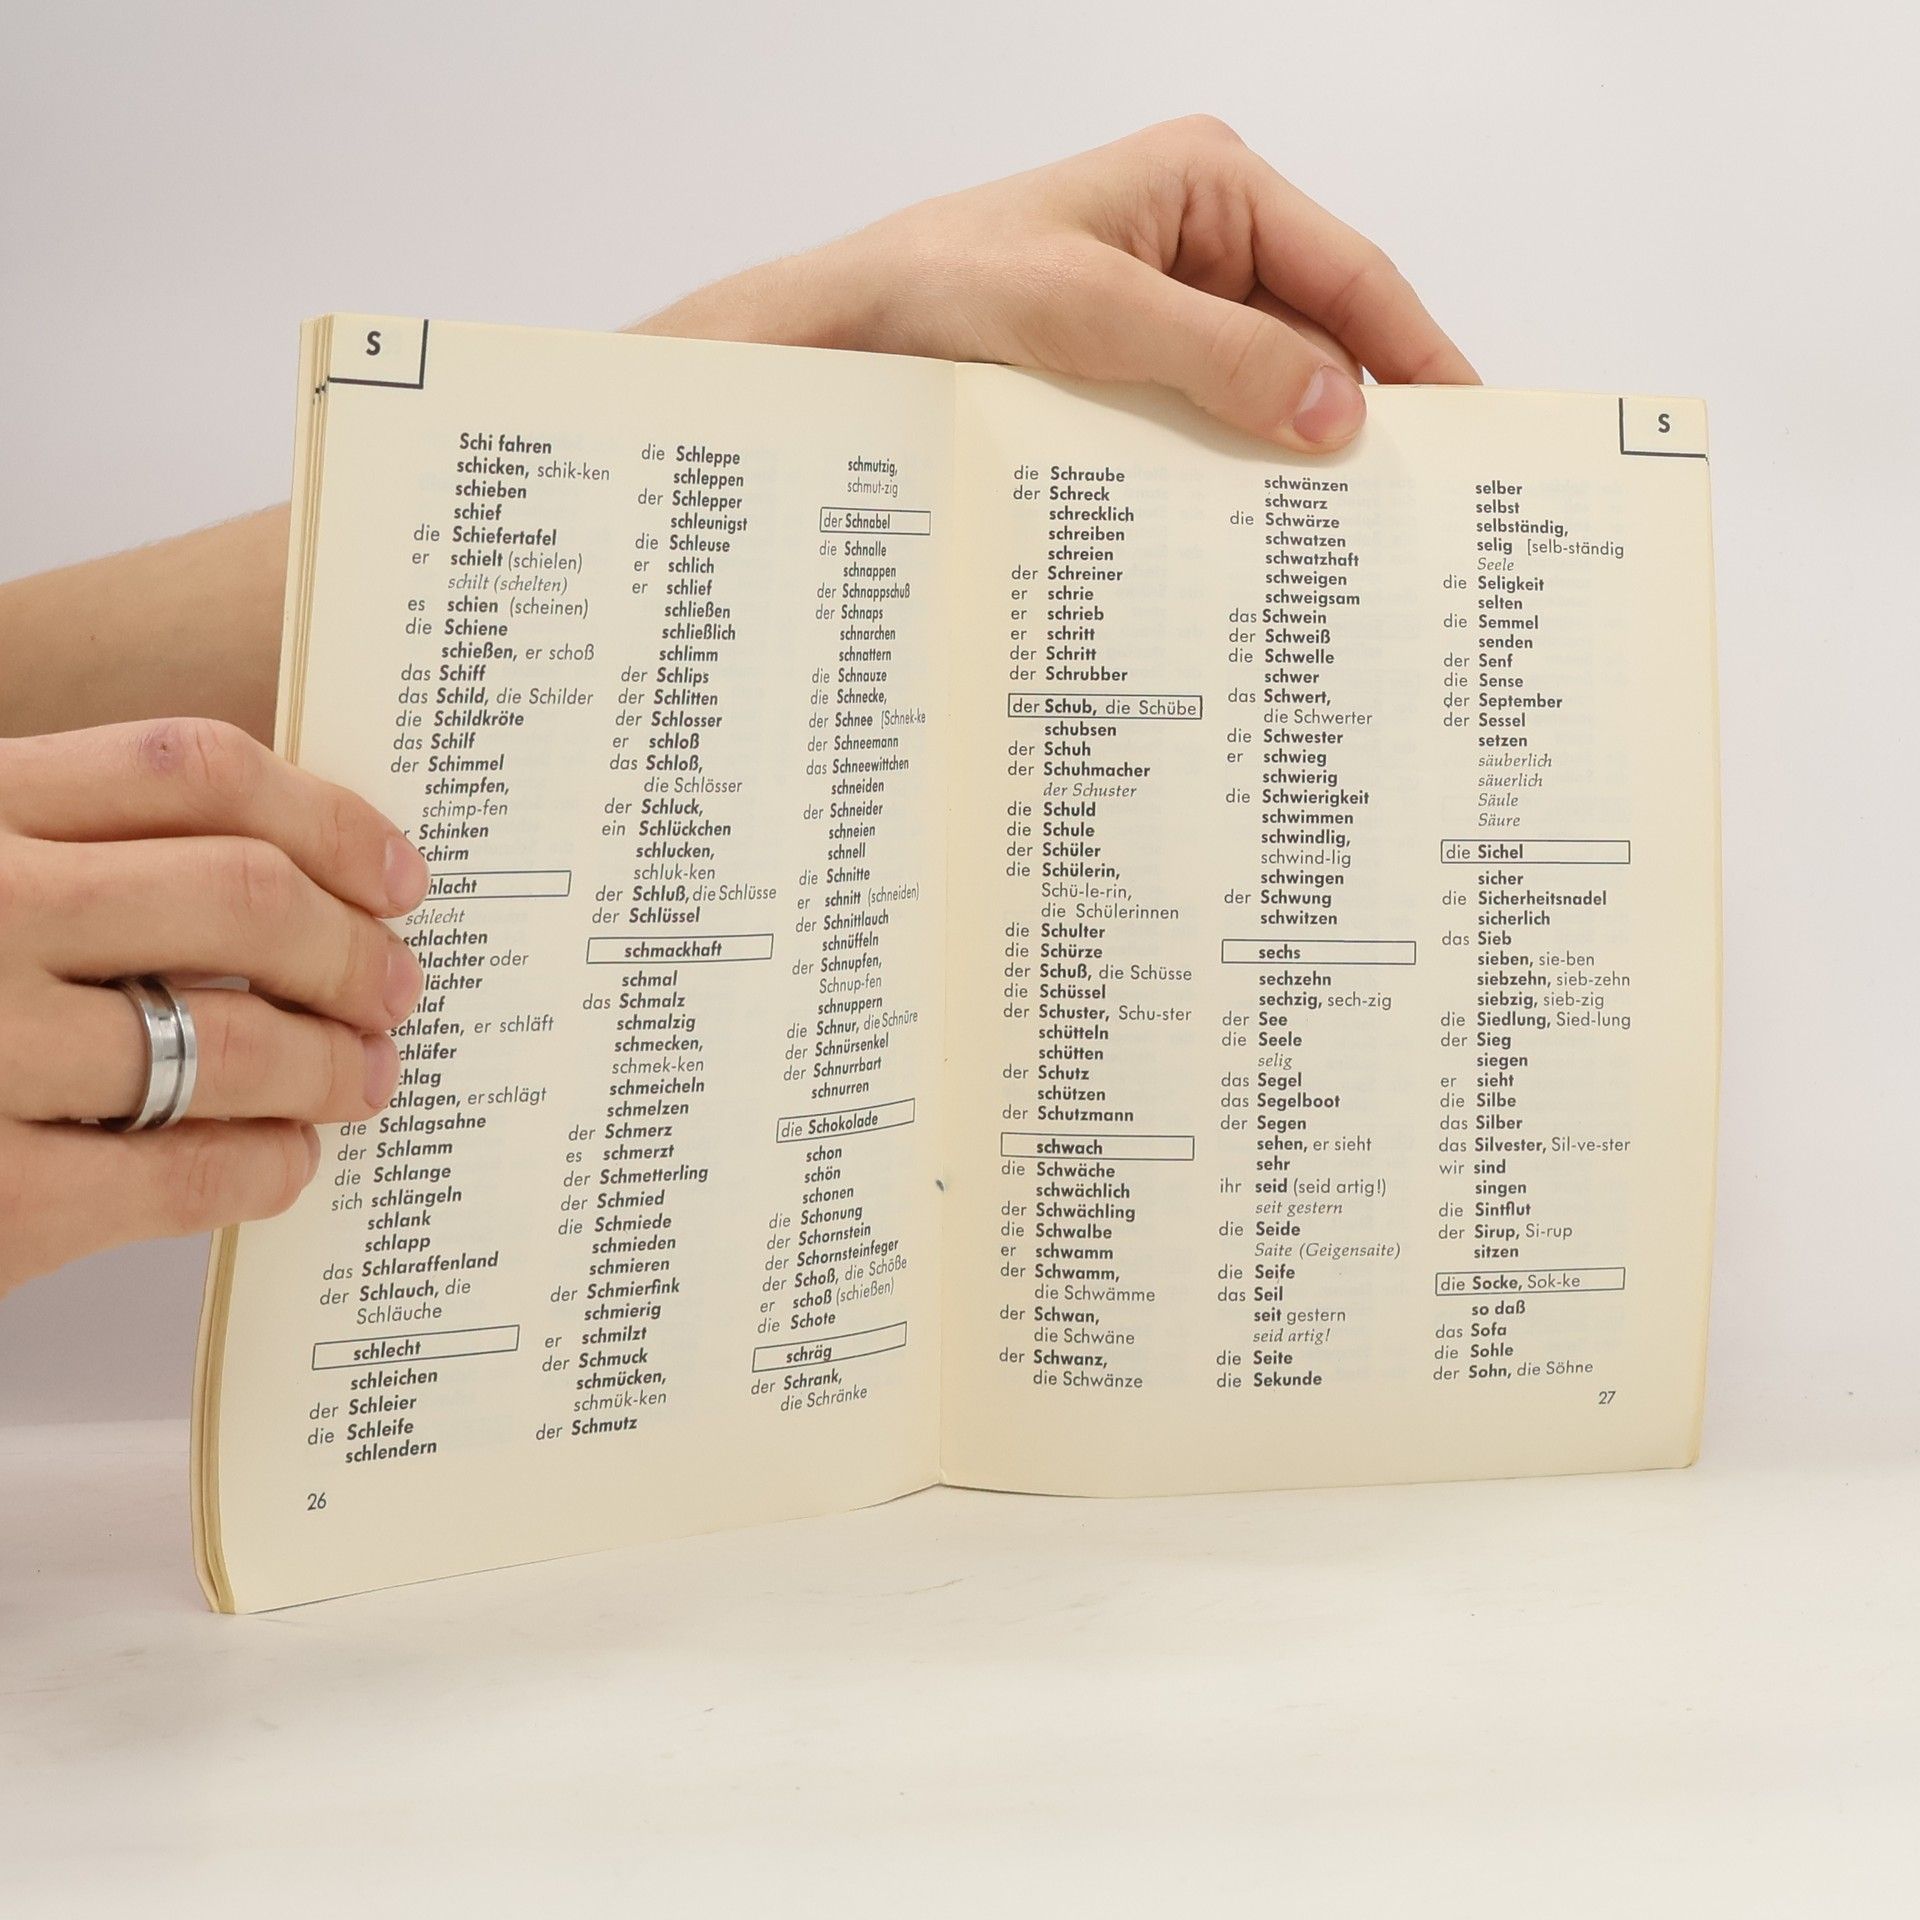 S
Schi fahren
schicken, schik-ken
schieben
schief
die Schiefertafel
er schielt (schielen)
schilt (schelten)
es schien (scheinen)
die Schiene
schießen, er schoß
das Schiff
das Schild, die Schilder
die Schildkröte
das Schilf
der Schimmel
schimpfen,
schimp-fen
r Schinken
Schirm
hlacht
schlecht
schlachten
hlachter oder
lächter
laf
schlafen, er schläft
chläfer
chlag
chlagen, er schlägt
die Schlagsahne
der Schlamm
die Schlange
sich schlängeln
schlank
schlapp
das Schlaraffenland
der Schlauch, die
Schläuche
schlecht
schleichen
der Schleier
die Schleife
schlendern
26
die Schleppe
schleppen
der Schlepper
schleunigst
die Schleuse
er schlich
er schlief
schließen
schließlich
schlimm
der Schlips
der Schlitten
der Schlosser
er schloß
das Schloß,
die Schlösser
der Schluck,
ein Schlückchen
schlucken,
schluk-ken
der Schluß, die Schlüsse
der Schlüssel
schmackhaft
schmal
das Schmalz
schmalzig
schmecken,
schmek-ken
schmeicheln
schmelzen
der Schmerz
es schmerzt
der Schmetterling
der Schmied
die Schmiede
schmieden
schmieren
der Schmierfink
schmierig
er schmilzt
der Schmuck
schmücken,
schmük-ken
der Schmutz
schmutzig,
schmut-zig
der Schnabel
die Schnalle
schnappen
der Schnappschuß
der Schnaps
schnarchen
schnattern
die Schnauze
die Schnecke,
der Schnee [Schnek-ke
der Schneemann
das Schneewittchen
schneiden
der Schneider
schneien
schnell
die Schnitte
er schnitt (schneiden)
der Schnittlauch
schnüffeln
der Schnupfen,
Schnup-fen
schnuppern
die Schnur, die Schnüre
der Schnürsenkel
der Schnurrbart
schnurren
die Schokolade
schon
schön
schonen
die Schonung
der Schornstein
der Schornsteinfeger
der Schoß, die Schöße
er schoß (schießen)
die Schote
schräg
der Schrank,
die Schränke
S
die Schraube
der Schreck
schrecklich
schreiben
schreien
der Schreiner
er schrie
er schrieb
er schritt
der Schritt
der Schrubber
der Schub, die Schübe
schubsen
der Schuh
der Schuhmacher
der Schuster
die Schuld
die Schule
der Schüler
die Schülerin,
Schü-le-rin,
die Schülerinnen
die Schulter
die Schürze
der Schuß, die Schüsse
die Schüssel
der Schuster, Schu-ster
schütteln
schütten
der Schutz
schützen
der Schutzmann
schwach
die Schwäche
schwächlich
der Schwächling
die Schwalbe
er schwamm
der Schwamm,
die Schwämme
der Schwan,
die Schwäne
der Schwanz,
die Schwänze
schwänzen
schwarz
die Schwärze
schwatzen
schwatzhaft
schweigen
schweigsam
das Schwein
der Schweiß
die Schwelle
schwer
das Schwert,
die Schwerter
die Schwester
er schwieg
schwierig
die Schwierigkeit
schwimmen
schwindlig,
schwind-lig
schwingen
der Schwung
schwitzen
sechs
sechzehn
sechzig, sech-zig
der See
die Seele
selig
das Segel
das Segelboot
der Segen
sehen, er sieht
sehr
ihr seid (seid artig!)
seit gestern
die Seide
Saite (Geigensaite)
die Seife
das Seil
seit gestern
seid artig!
die Seite
die Sekunde
selber
selbst
selbständig,
selig [selb-ständig
Seele
die Seligkeit
selten
die Semmel
senden
der Senf
die Sense
der September
der Sessel
setzen
säuberlich
säuerlich
Säule
Säure
die Sichel
sicher
die Sicherheitsnadel
sicherlich
das Sieb
sieben, sie-ben
siebzehn, sieb-zehn
siebzig, sieb-zig
die Siedlung, Sied-lung
der Sieg
siegen
er sieht
die Silbe
das Silber
das Silvester, Sil-ve-ster
wir sind
singen
die Sintflut
der Sirup, Si-rup
sitzen
die Socke, Sok-ke
so daß
das Sofa
die Sohle
der Sohn, die Söhne
27